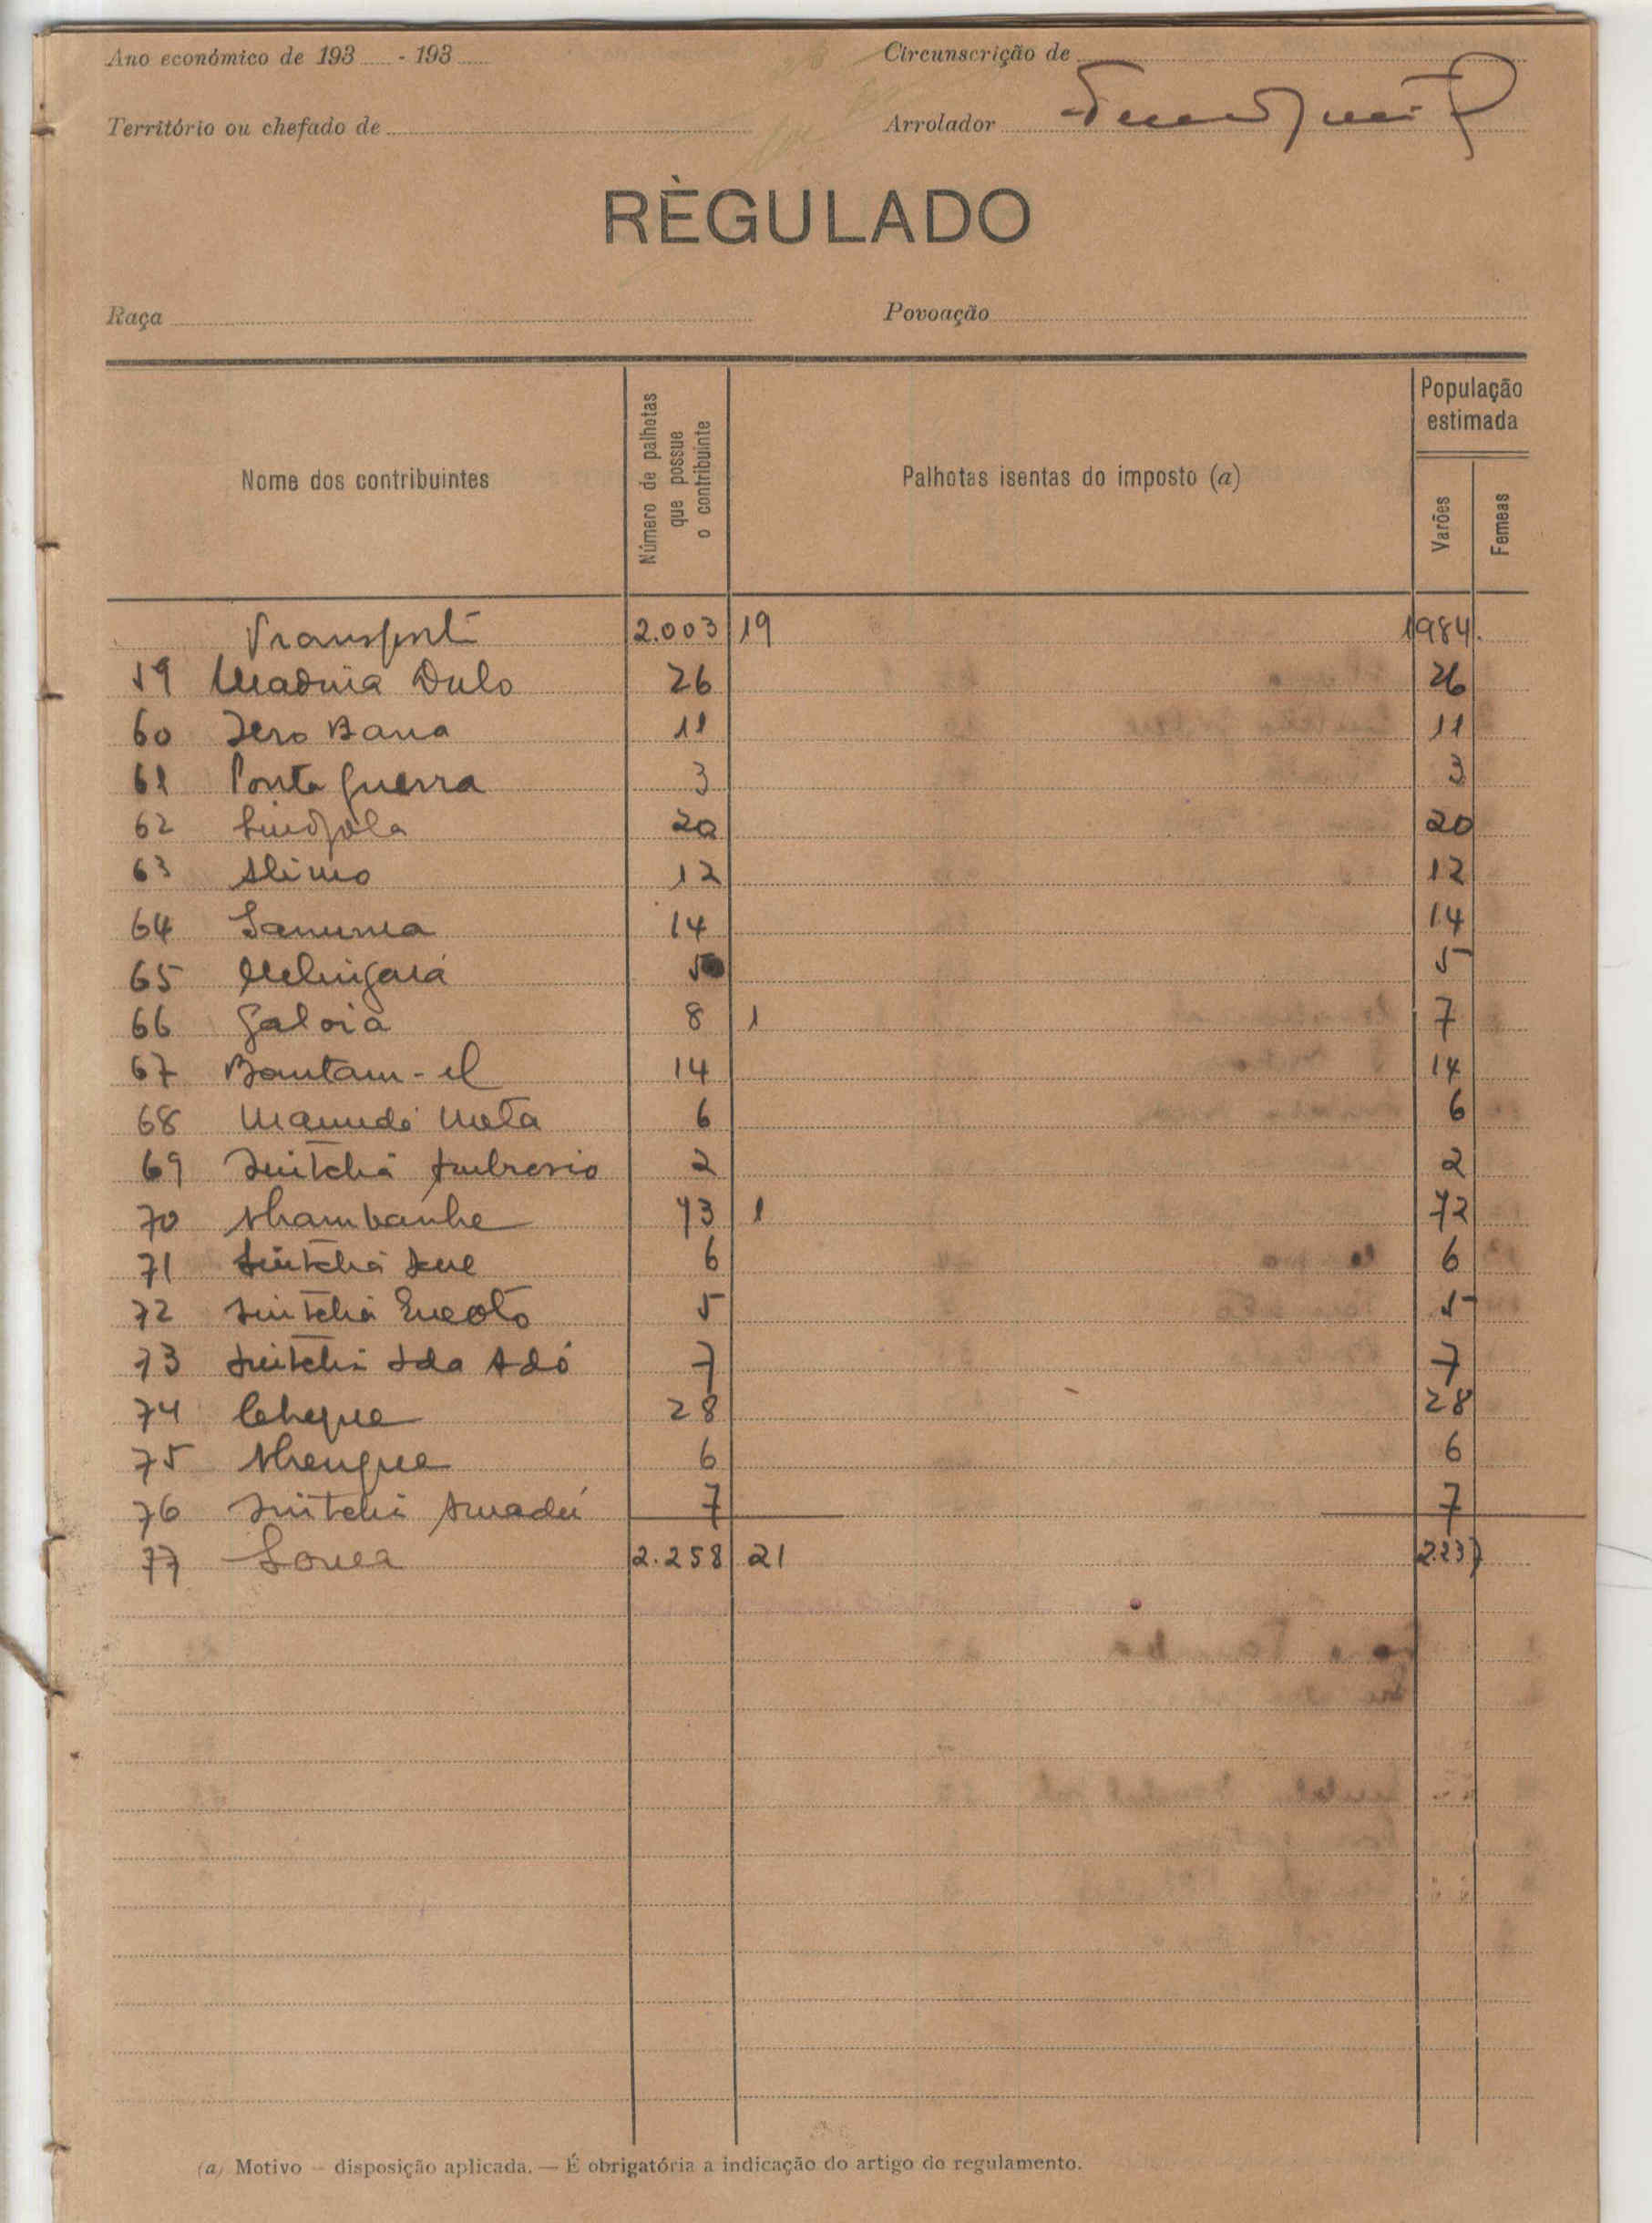 Ano económico de 193 - 193
Circunscrição de
Território ou chefado de
Arrolador
RÈGULADO
Raça
Povoação
Nome dos contribuintes
Número de palhotas que possue o contribuinte
Palhotas isentas do imposto (a)
População estimada
Varões
Femeas
Transport 2.003 19 1984.
59 Madina Dulo 26 26
60 Jero Bana 11 11
61 Ponta Guerra 3 3
62 20 20
63 12 12
64 14 14
65 5 5
66 Galoia 8 1 7
67 Bantam-el 14 14
68 Mamudo Mota 6 6
69 Sintchã Ambrosio 2 2
70 73 1 72
71 Sintchã 6 6
72 Sintchã 5 5
73 Sintchã Ida Adó 7 7
74 Cheque 28 28
75 6 6
76 Sintchã Amadú 7 7
77 2.258 21 2.237
(a) Motivo — disposição aplicada. — É obrigatória a indicação do artigo do regulamento.